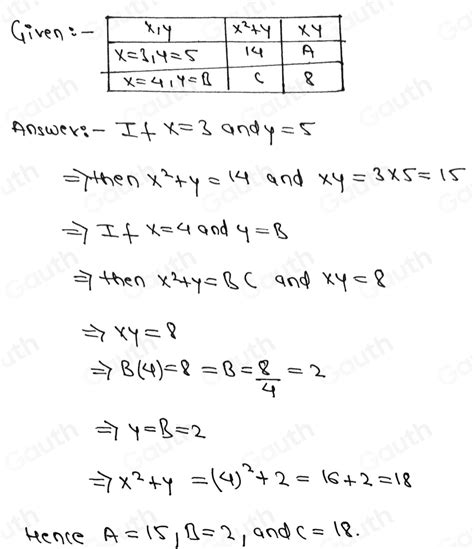 Given :-
x,y x²+y xy
x=3,y=5 14 A
x=4,y=B C 8
Answer:- If x=3 and y=5
⇒ then x²+y = 14 and xy = 3×5 = 15
⇒ If x=4 and y=B
⇒ then x²+y = BC and xy = 8
⇒ xy = 8
⇒ B(4)=8 = B = 8/4 = 2
⇒ y=B=2
⇒ x²+y = (4)²+2 = 16+2 = 18
Hence A = 15, B=2, and C = 18.